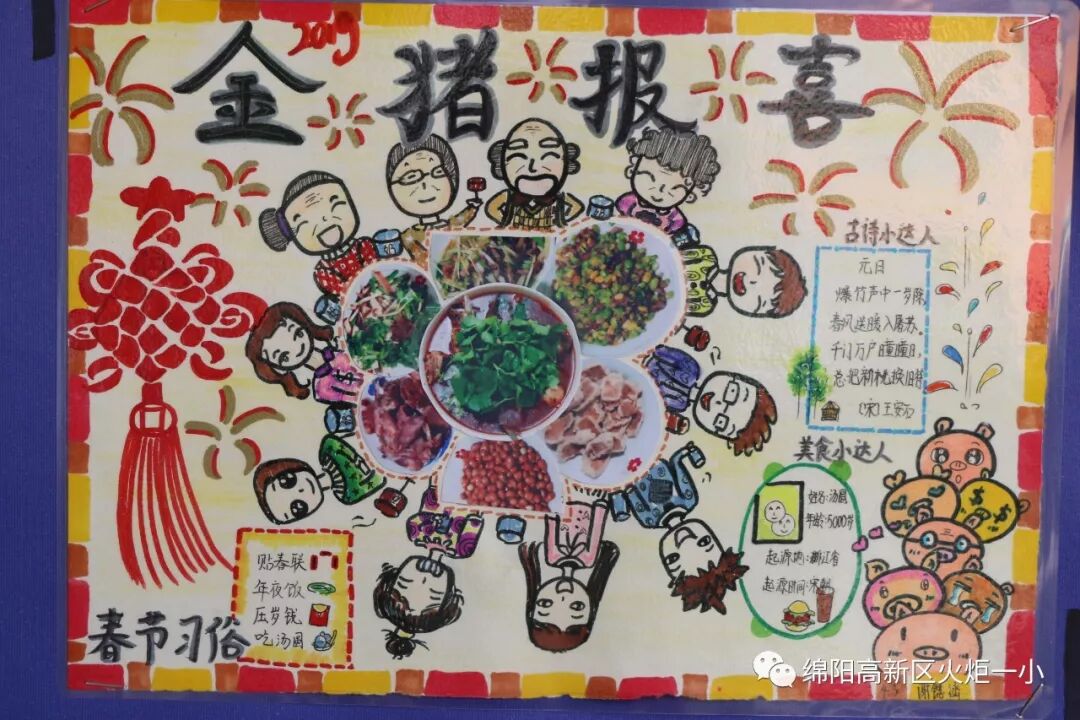 2019
金猪报喜
古诗小达人
元日
爆竹声中一岁除,
春风送暖入屠苏。
千门万户曈曈日,
总把新桃换旧符
(宋)王安石
美食小达人
姓名:汤圆
年龄:5000岁
起源地:浙江省
起源时间:宋朝
贴春联
年夜饭
压岁钱
吃汤圆
春节习俗
绵阳高新区火炬一小